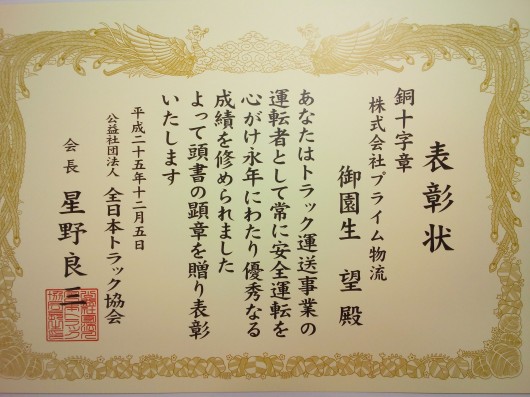 表彰状
銅十字章
株式会社プライム物流
御園生 望 殿
あなたはトラック運送事業の
運転者として常に安全運転を
心がけ永年にわたり優秀なる
成績を修められました
よって頭書の顕章を贈り表彰
いたします
平成二十五年十二月五日
公益社団法人 全日本トラック協会
会長 星野良三